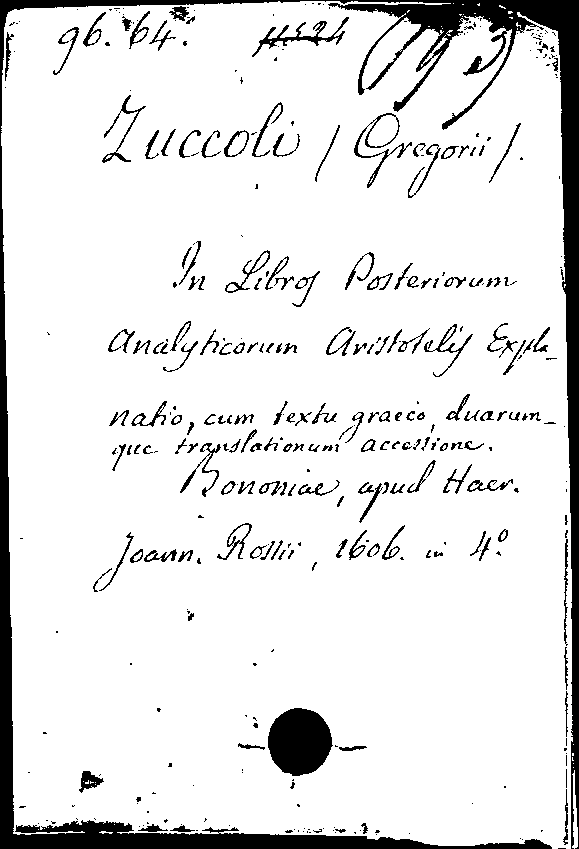 96. 64.
Zuccoli / Gregorii /.
In Libros Posteriorum
Analyticorum Aristotelis Expla-
natio, cum textu graeco, duarum-
que translationum accessione.
Bononiae, apud Haer.
Joann. Rossii, 1606. in 4º